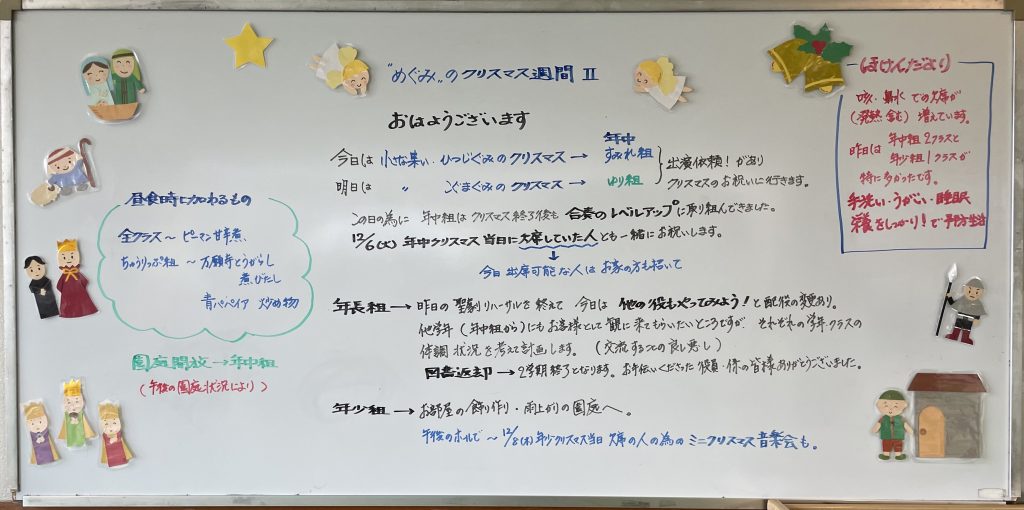 "めぐみ"のクリスマス週間 II
おはようございます
今日は 小さな集い・ひつじぐみのクリスマス → 年中 すみれ組
明日は 〃 こぐまぐみのクリスマス → ゆり組
出演依頼!があり
クリスマスのお祝いに行きます。
この日の為に 年中組はクリスマス終了後も 合奏のレベルアップに取り組んできました。
12/6(火) 年中クリスマス当日に欠席していた人とも一緒にお祝いします。
↓
今日出席可能な人はお家の方も招いて
年長組→昨日の聖劇リハーサルを終えて 今日は 他の役もやってみよう!と配役の変更あり。
他学年(年中組から)にもお客様として観に来てもらいたいところですが それぞれの学年クラスの
体調状況を考えて計画します。(交流することの良し悪し)
図書返却→2学期終了となります。お手伝いくださった役員・係の皆様ありがとうございました。
年少組→お部屋の飾り作り・雨上がりの園庭へ。
午後のホールで〜12/8(木)年少クリスマス当日 欠席の人の為のミニクリスマス音楽会も。
昼食時に加わるもの
全クラス〜ピーマン甘辛煮、
ちゅうりっぷ組〜万願寺とうがらし
煮びたし
青パパイア 炒め物
園庭開放→年中組
(午後の園庭状況により)
ほけんだより
咳・鼻水での欠席が
(発熱含む)増えています。
昨日は 年中組2クラスと
年少組1クラスが
特に多かったです。
手洗い・うがい・睡眠
栄養をしっかり!で予防生活